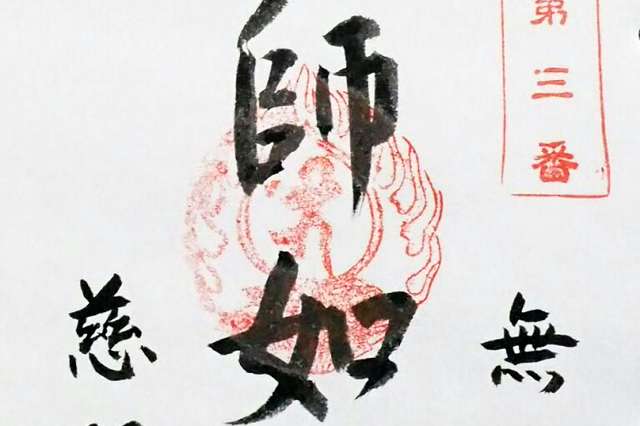 第三番
無
師如
慈